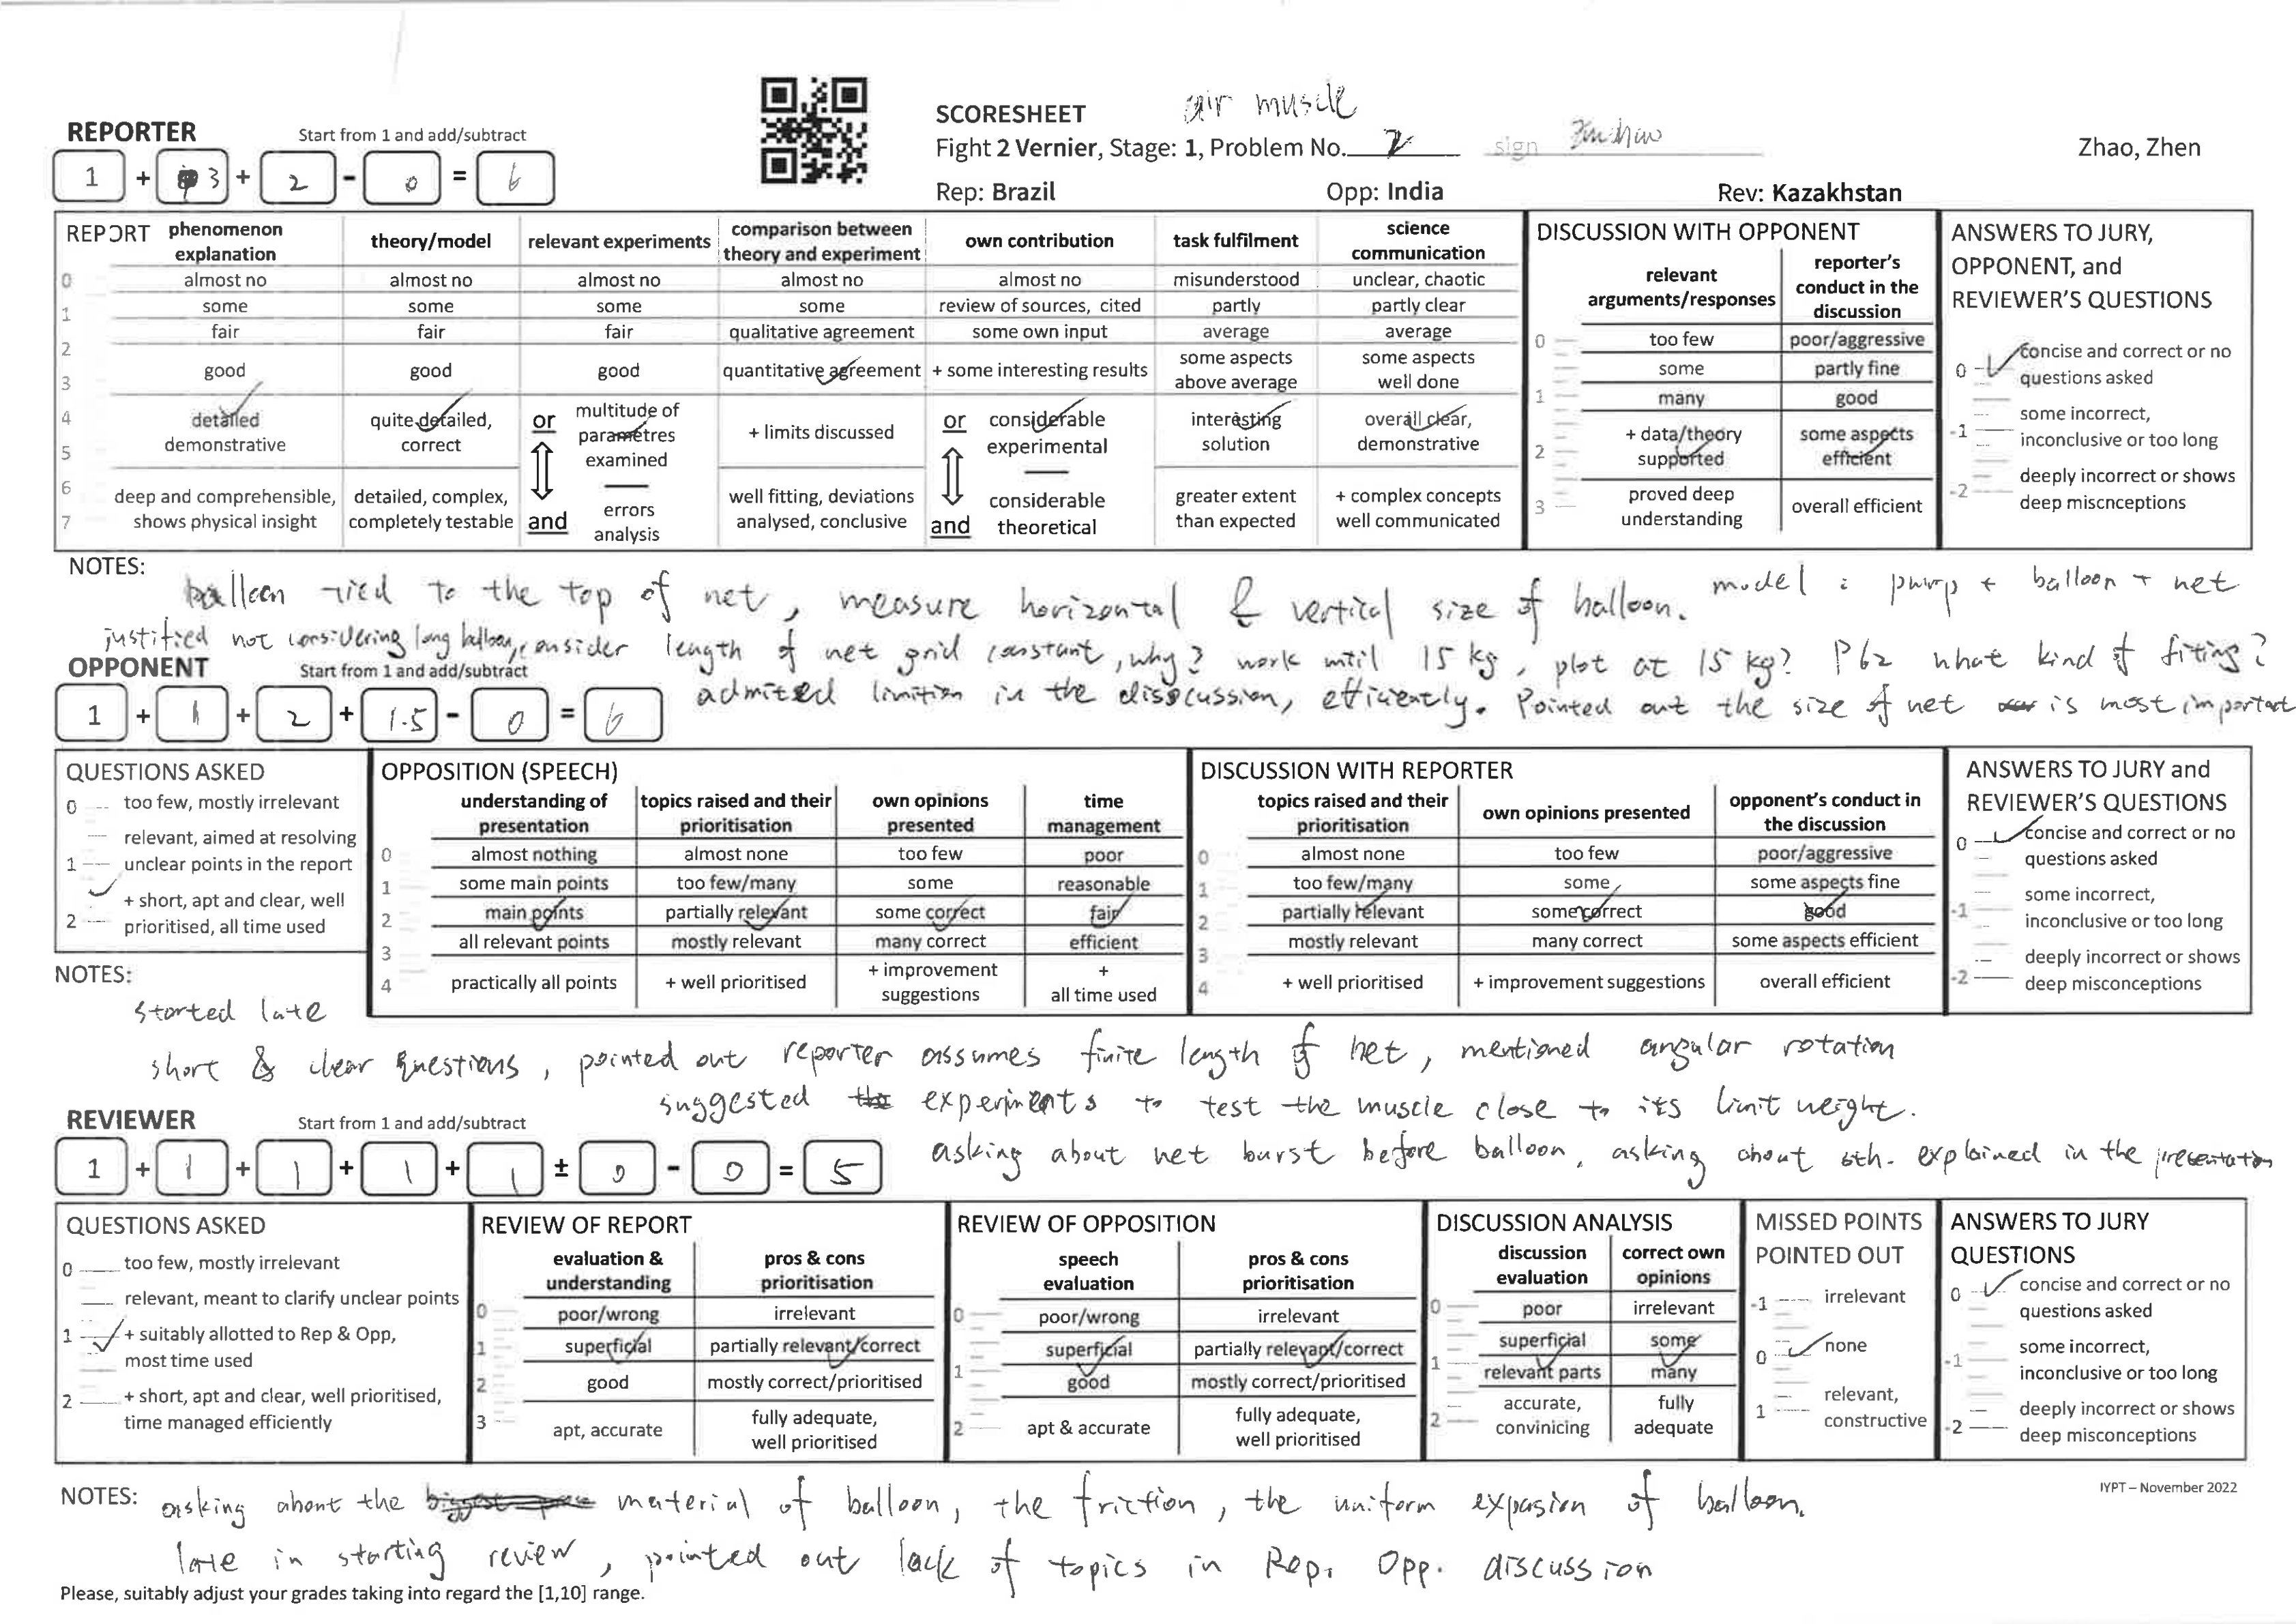 air muscle
SCORESHEET
REPORTER Start from 1 and add/subtract
Fight 2 Vernier, Stage: 1, Problem No. 2 sign Zhao, Zhen
1 + 3 + 2 - 0 = 6
Rep: Brazil Opp: India Rev: Kazakhstan
REPORT
phenomenon explanation
theory/model
relevant experiments
comparison between theory and experiment
own contribution
task fulfilment
science communication
0 almost no almost no almost no almost no almost no misunderstood unclear, chaotic
1 some some some some review of sources, cited partly partly clear
2 fair fair fair qualitative agreement some own input average average
3 good good good quantitative agreement + some interesting results some aspects above average some aspects well done
4
5
detailed demonstrative
quite detailed, correct
or
multitude of parametres examined
+ limits discussed
or
considerable experimental
interesting solution
overall clear, demonstrative
6
7
deep and comprehensible, shows physical insight
detailed, complex, completely testable
and
errors analysis
well fitting, deviations analysed, conclusive
and
considerable theoretical
greater extent than expected
+ complex concepts well communicated
DISCUSSION WITH OPPONENT
relevant arguments/responses
reporter's conduct in the discussion
0 too few poor/aggressive
some partly fine
1 many good
2 + data/theory supported some aspects efficient
3 proved deep understanding overall efficient
ANSWERS TO JURY,
OPPONENT, and
REVIEWER'S QUESTIONS
0 concise and correct or no
questions asked
-1 some incorrect,
inconclusive or too long
-2 deeply incorrect or shows
deep miscnceptions
NOTES:
balloon tied to the top of net, measure horizontal & vertical size of balloon. model : pump + balloon + net
justified not considering long balloon, consider length of net grid constant, why? work until 15 kg, plot at 15 kg? P62 what kind of fiting?
admited limition in the disscussion, efficiently. Pointed out the size of net is most important
OPPONENT Start from 1 and add/subtract
1 + 1 + 2 + 1.5 - 0 = 6
QUESTIONS ASKED
0 too few, mostly irrelevant
relevant, aimed at resolving
1 unclear points in the report
+ short, apt and clear, well
2 prioritised, all time used
OPPOSITION (SPEECH)
understanding of presentation
topics raised and their prioritisation
own opinions presented
time management
0 almost nothing almost none too few poor
1 some main points too few/many some reasonable
2 main points partially relevant some correct fair
3 all relevant points mostly relevant many correct efficient
4 practically all points + well prioritised + improvement suggestions + all time used
DISCUSSION WITH REPORTER
topics raised and their prioritisation
own opinions presented
opponent's conduct in the discussion
0 almost none too few poor/aggressive
1 too few/many some some aspects fine
2 partially relevant some correct good
3 mostly relevant many correct some aspects efficient
4 + well prioritised + improvement suggestions overall efficient
ANSWERS TO JURY and
REVIEWER'S QUESTIONS
0 concise and correct or no
questions asked
-1 some incorrect,
inconclusive or too long
deeply incorrect or shows
-2 deep misconceptions
NOTES:
started late
short & clear questions, pointed out reporter assumes finite length of net, mentioned angular rotation
suggested experiments to test the muscle close to its limit weight.
asking about net burst before balloon, asking about sth. explained in the presentation
REVIEWER Start from 1 and add/subtract
1 + 1 + 1 + 1 + 1 ± 0 - 0 = 5
QUESTIONS ASKED
0 too few, mostly irrelevant
relevant, meant to clarify unclear points
1 + suitably allotted to Rep & Opp,
most time used
2 + short, apt and clear, well prioritised,
time managed efficiently
REVIEW OF REPORT
evaluation & understanding
pros & cons prioritisation
0 poor/wrong irrelevant
1 superficial partially relevant/correct
2 good mostly correct/prioritised
3 apt, accurate fully adequate, well prioritised
REVIEW OF OPPOSITION
speech evaluation
pros & cons prioritisation
0 poor/wrong irrelevant
superficial partially relevant/correct
1 good mostly correct/prioritised
2 apt & accurate fully adequate, well prioritised
DISCUSSION ANALYSIS
discussion evaluation
correct own opinions
0 poor irrelevant
superficial some
1 relevant parts many
2 accurate, convinicing fully adequate
MISSED POINTS
POINTED OUT
-1 irrelevant
0 none
relevant,
1 constructive
ANSWERS TO JURY
QUESTIONS
0 concise and correct or no
questions asked
-1 some incorrect,
inconclusive or too long
deeply incorrect or shows
-2 deep misconceptions
NOTES: asking about the material of balloon, the friction, the uniform expasion of balloon.
late in starting review, pointed out lack of topics in Rep. Opp. discussion
IYPT – November 2022
Please, suitably adjust your grades taking into regard the [1,10] range.